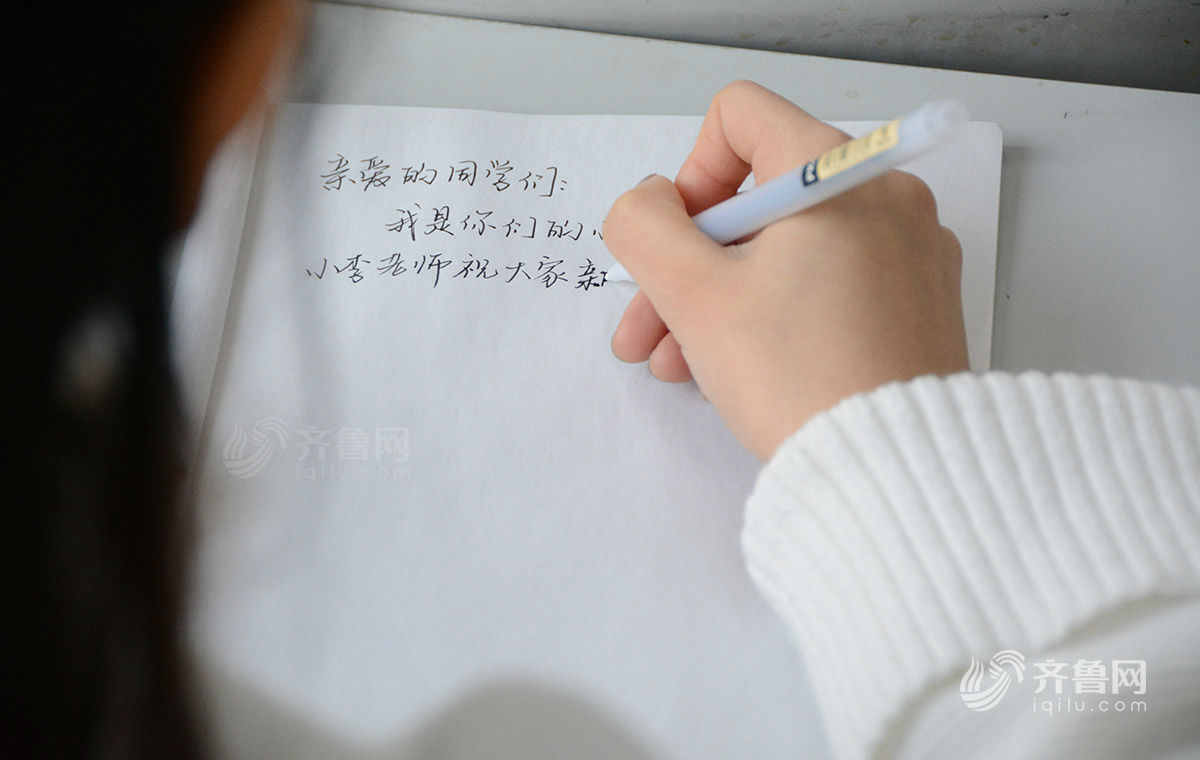 亲爱的同学们：
我是你们的小
小李老师祝大家新
齐鲁网
iqilu.com
齐鲁网
iqilu.com